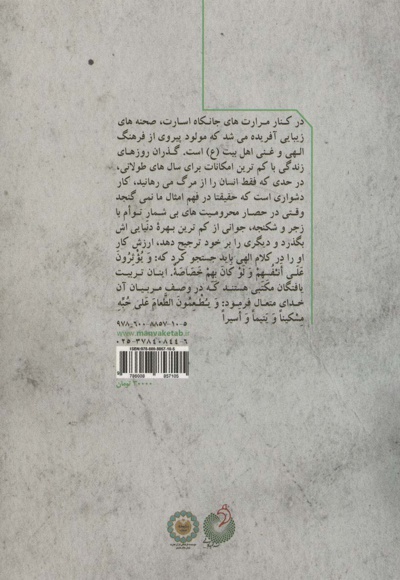 در کنار مرارت های جانکاه اسارت، صحنه های
زیبایی آفریده می شد که مولود پیروی از فرهنگ
الهی و غنی اهل بیت (ع) است. گذران روزهای
زندگی با کم ترین امکانات برای سال های طولانی،
در حدی که فقط انسان را از مرگ می رهانید، کار
دشواری است که حقیقتا در فهم امثال ما نمی گنجد
وقتی در حصار محرومیت های بی شمار توأم با
زجر و شکنجه، جوانی از کم ترین بهرهٔ دنیایی اش
بگذرد و دیگری را بر خود ترجیح دهد، ارزش کار
او را در کلام الهی باید جستجو کرد که: وَ یُؤْثِرُونَ
عَلَی أَنفُسِهِمْ وَ لَوْ کَانَ بِهِمْ خَصَاصَةٌ. اینان تربیت
یافتگان مکتبی هستند که در وصف مربیان آن
خدای متعال فرمود: وَ یُطْعِمُونَ الطَّعَامَ عَلَی حُبِّهِ
مِسْکِیناً وَ یَتِیماً وَ أَسِیراً
۹۷۸-۶۰۰-۸۸۵۷-۱۰-۵
www.manvaketab.ir
۰۲۵-۳۷۸۴۰۸۴۴-۶
ISBN:978-600-8857-10-5
9 786008 857105
۲۰۰۰۰ تومان